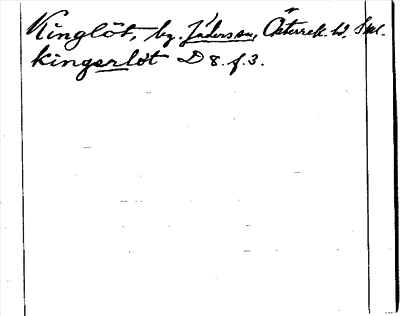 Kinglöt, by. Jäderssen, Österrek. W. Sml.
kingerlöt D 8. f. 3.